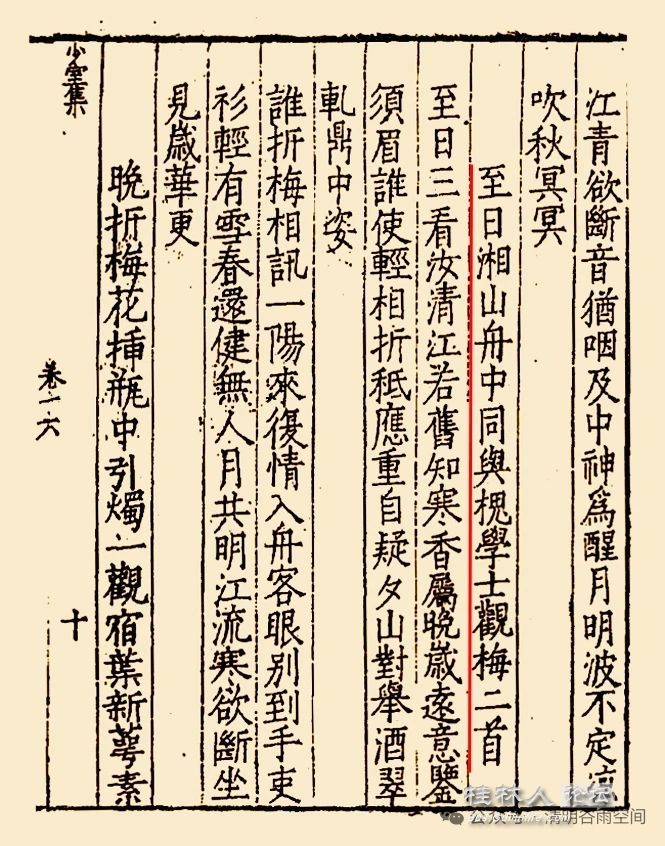 江青欲斷音猶咽及中神爲醒月明波不定凉
吹秋冥冥
至日湘山舟中同與槐學士觀梅二首
至日三看汝清江若舊知寒香屬晚歲遠意鑒
須眉誰使輕相折秪應重自疑夕山對舉酒翠
軋鼎中姿
誰折梅相訊一陽來復情入舟客眼別到手吏
衫輕有雪春還健無人月共明江流寒欲斷坐
見歲華更
晚折梅花揷瓶中引燭一觀宿葉新萼素
少室集
卷十六
十
桂林人论坛
清明谷雨空间